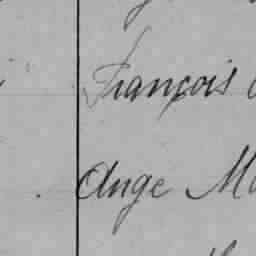 François
Ange